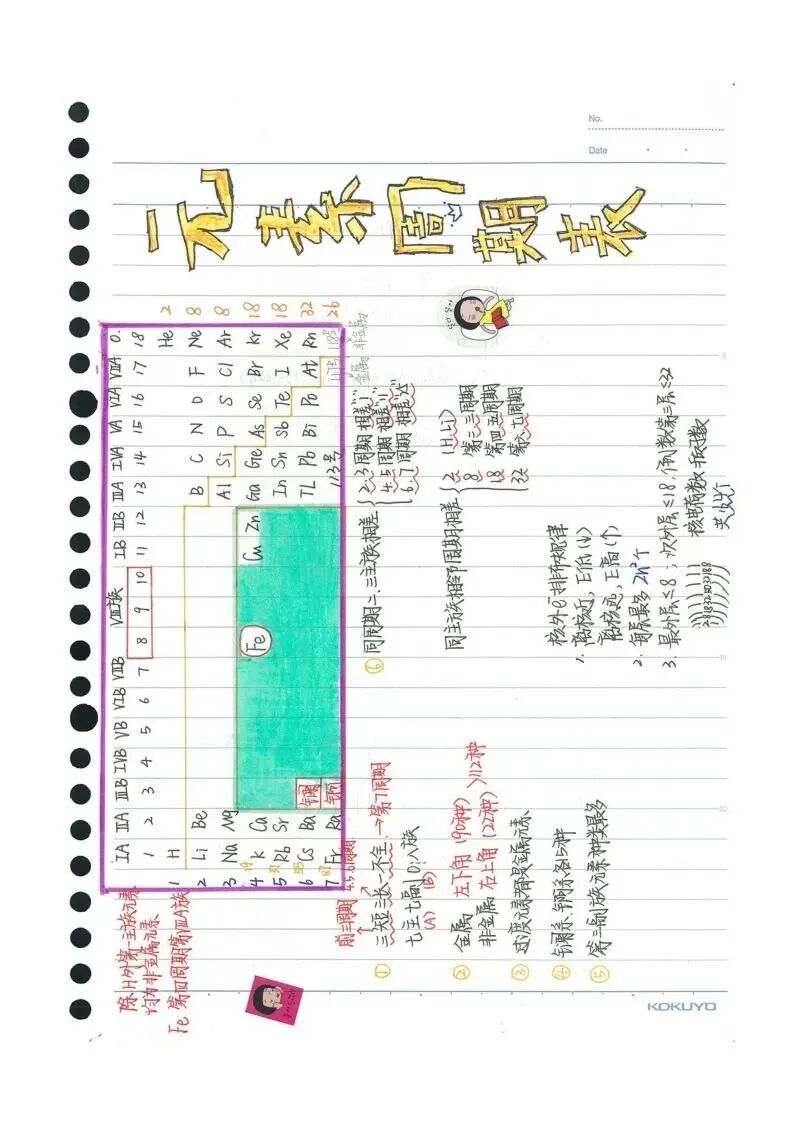 No.
Date
元素周期表
ⅠA ⅡA ⅢB ⅣB ⅤB ⅥB ⅦB Ⅷ族 ⅠB ⅡB ⅢA ⅣA ⅤA ⅥA ⅦA 0.
1 2 3 4 5 6 7 8 9 10 11 12 13 14 15 16 17 18
1 H He 2
2 Li Be B C N O F Ne 8
3 Na Mg Al Si P S Cl Ar 8
4 19 K Ca Fe Cu Zn Ga Ge As Se Br Kr 18
5 37 Rb Sr In Sn Sb Te I Xe 18
6 55 Cs Ba 镧 TL Pb Bi Po At Rn 32
7 87 Fr Ra 锕 113号 117号 118号 26
金属 非金属
除H外第一主族元素
均为非金属元素
Fe 第四周期第ⅧA族
前三周期 4.5.6周期
① 三短三长一不全 → 第7周期
七主七副10;八族
(A) (B)
② 金属 左下角 (90种)
非金属 右上角 (22种) >112种
③ 过渡元素都是金属元素
④ 镧系、锕系各15种
⑤ 第三副族元素种类最多
⑥ 同周期二、三主族相差
2.3周期 相差"1"
4.5周期 相差"11"
6.7周期 相差"25"
同主族相邻周期相差
2 (H.Li)
8 第二、三周期
18 第四、五周期
32 第六、七周期
核外e⁻排布规律
1. 离核近,E低(↓)
离核远,E高(↑)
2. 每层最多 2n²个
3. 最外层≤8;次外层≤18,倒数第三层≤32
2 8 18 32 50 32 18 8
核电荷数=质子数
KOKUYO